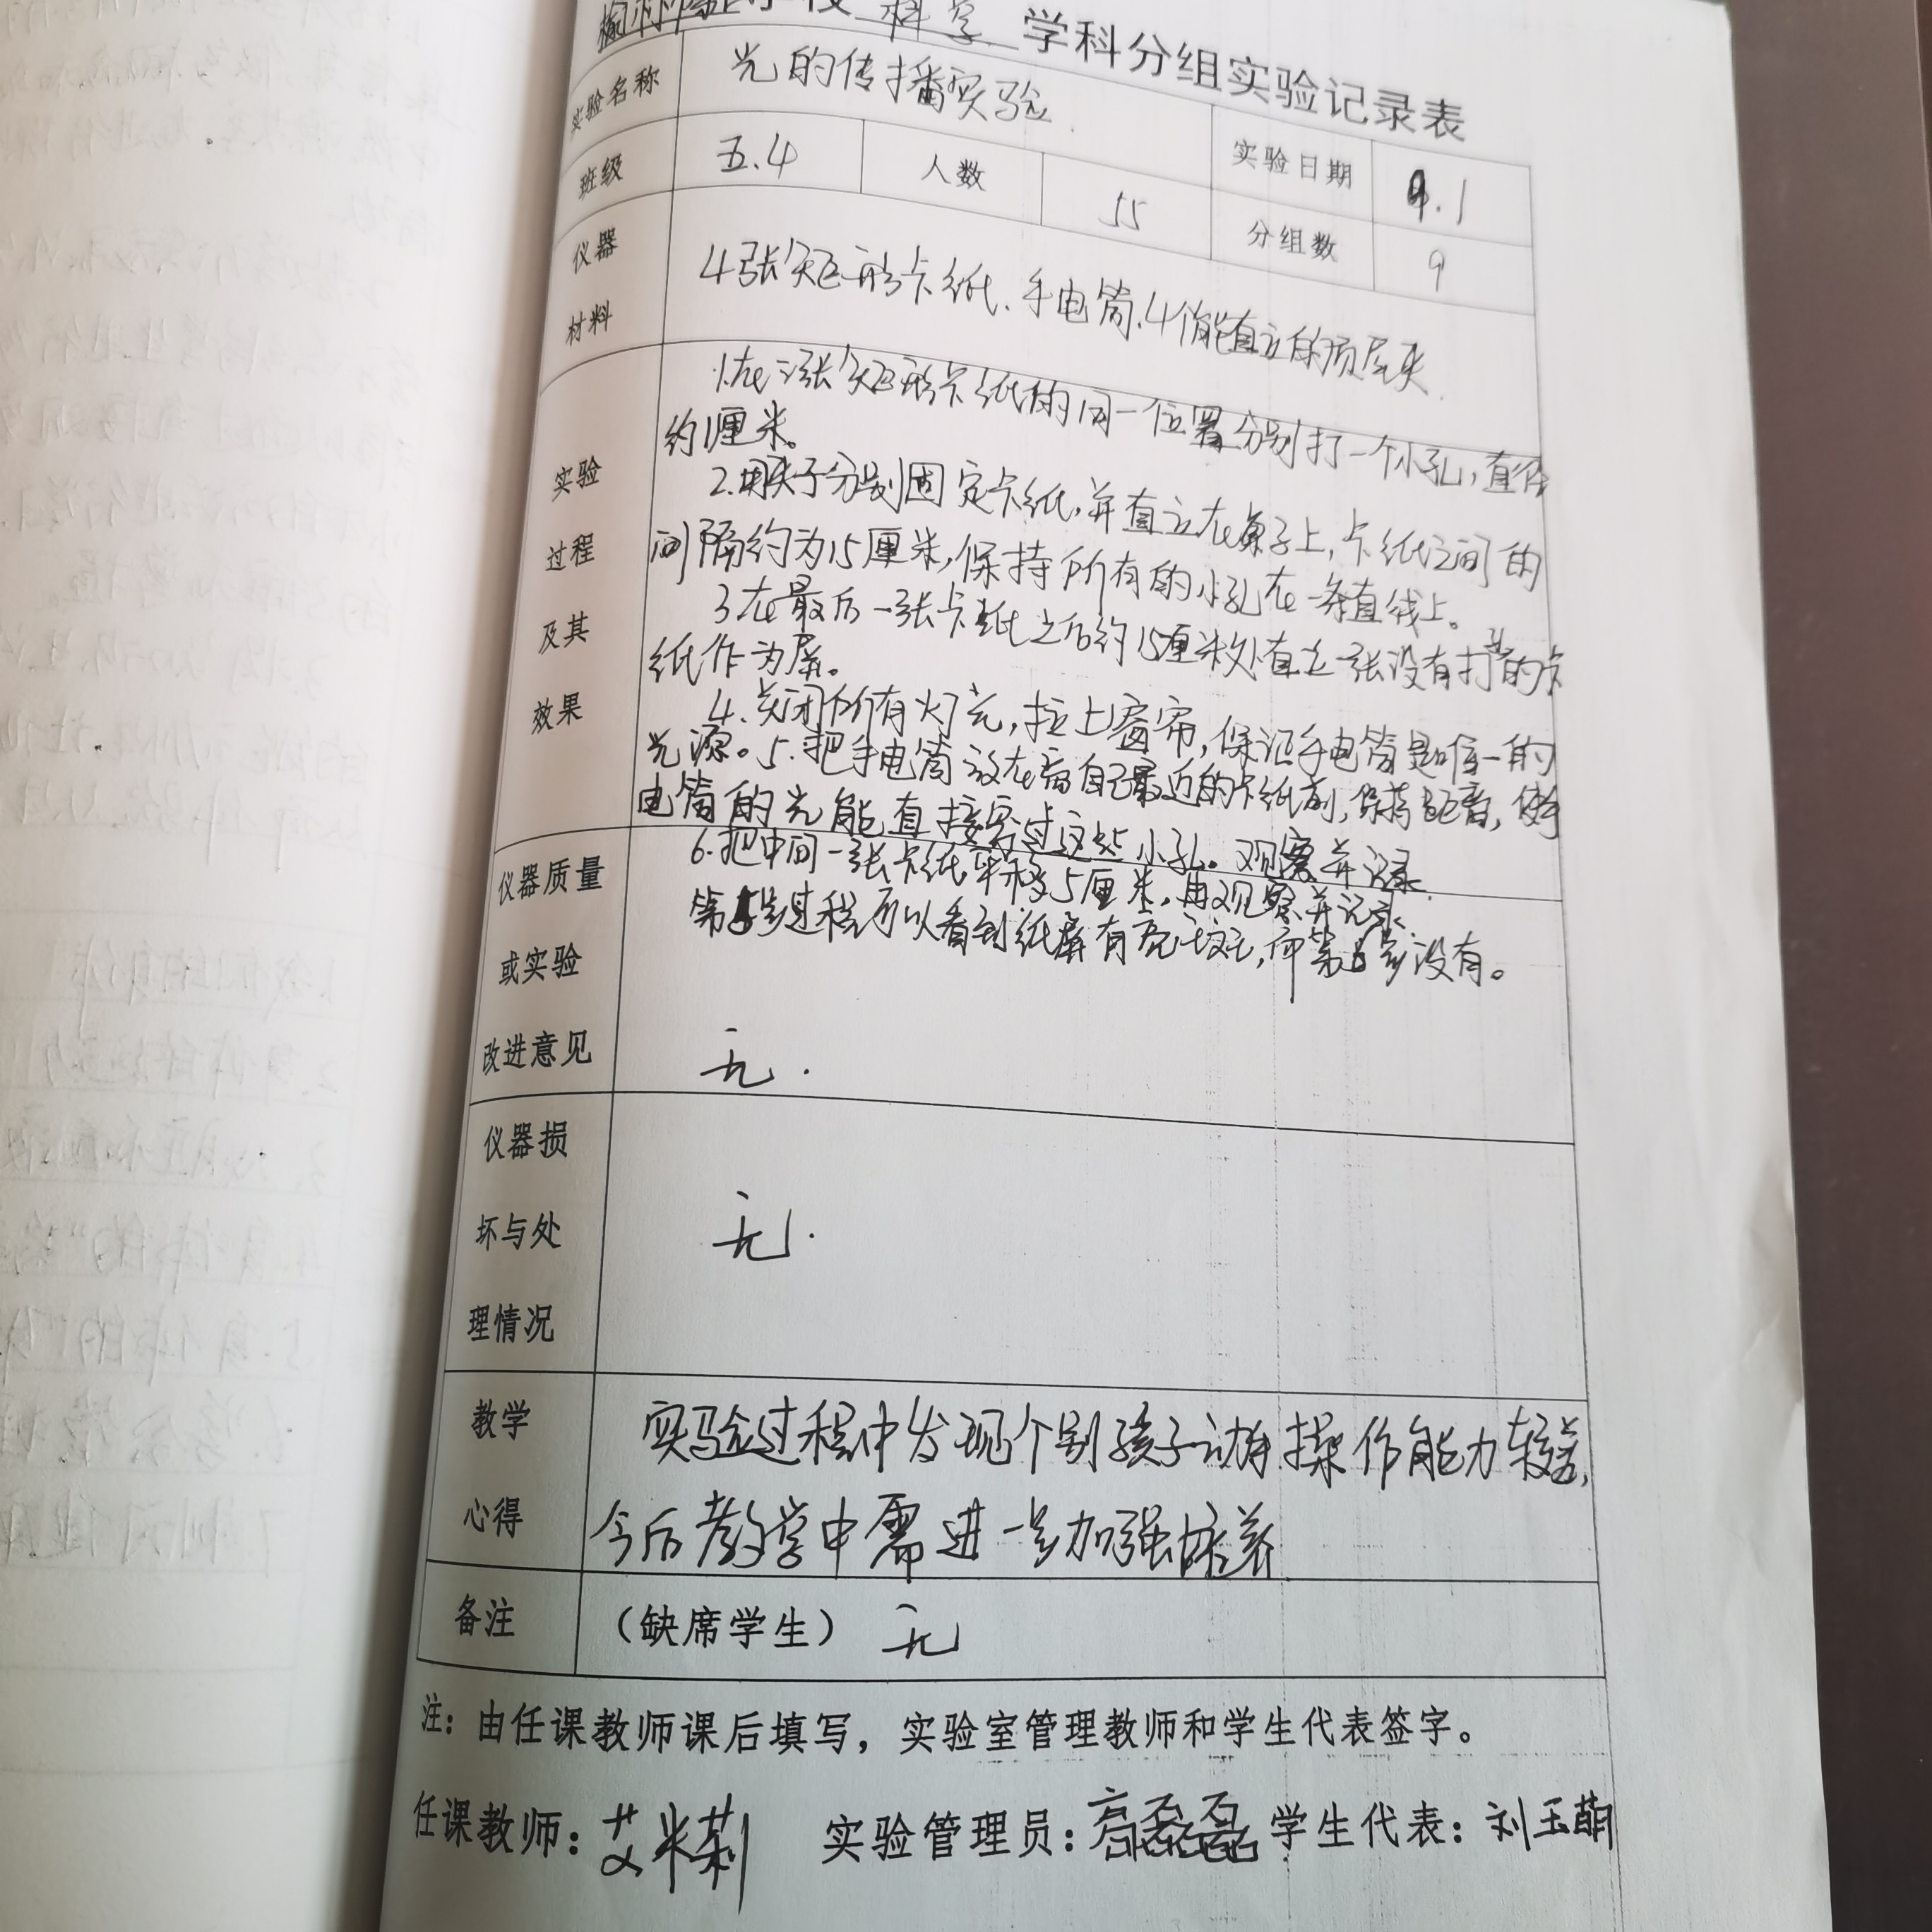 科学 学科分组实验记录表
实验名称 光的传播实验
实验日期 9.1
班级 五.4 人数 55 分组数 9
仪器材料 4张矩形卡纸、手电筒、4个能直立的
实验过程及其效果
1.在三张矩形卡纸的同一位置分别打一个小孔,直径
约1厘米。
2.用夹子分别固定卡纸,并直立在桌子上,卡纸之间的
间隔约为15厘米,保持所有的小孔在一条直线上。
3在最后一张卡纸之后约15厘米处直立一张没有打孔的卡
纸作为屏。
4.关闭所有灯光,拉上窗帘,保证手电筒是唯一的
光源。5.把手电筒放在离自己最近的卡纸前,保持距离,使手
电筒的光能直接穿过这些小孔。观察并记录
6.把中间一张卡纸平移5厘米,再观察并记录.
第5步过程可以看到纸屏有亮斑,而第6步没有。
仪器质量或实验改进意见 无.
仪器损坏与处理情况 无.
教学心得
实验过程中发现个别孩子动手操作能力较差,
今后教学中需进一步加强培养
备注 (缺席学生) 无
注:由任课教师课后填写,实验室管理教师和学生代表签字。
任课教师:艾米莉 实验管理员:高磊磊 学生代表:刘玉萌